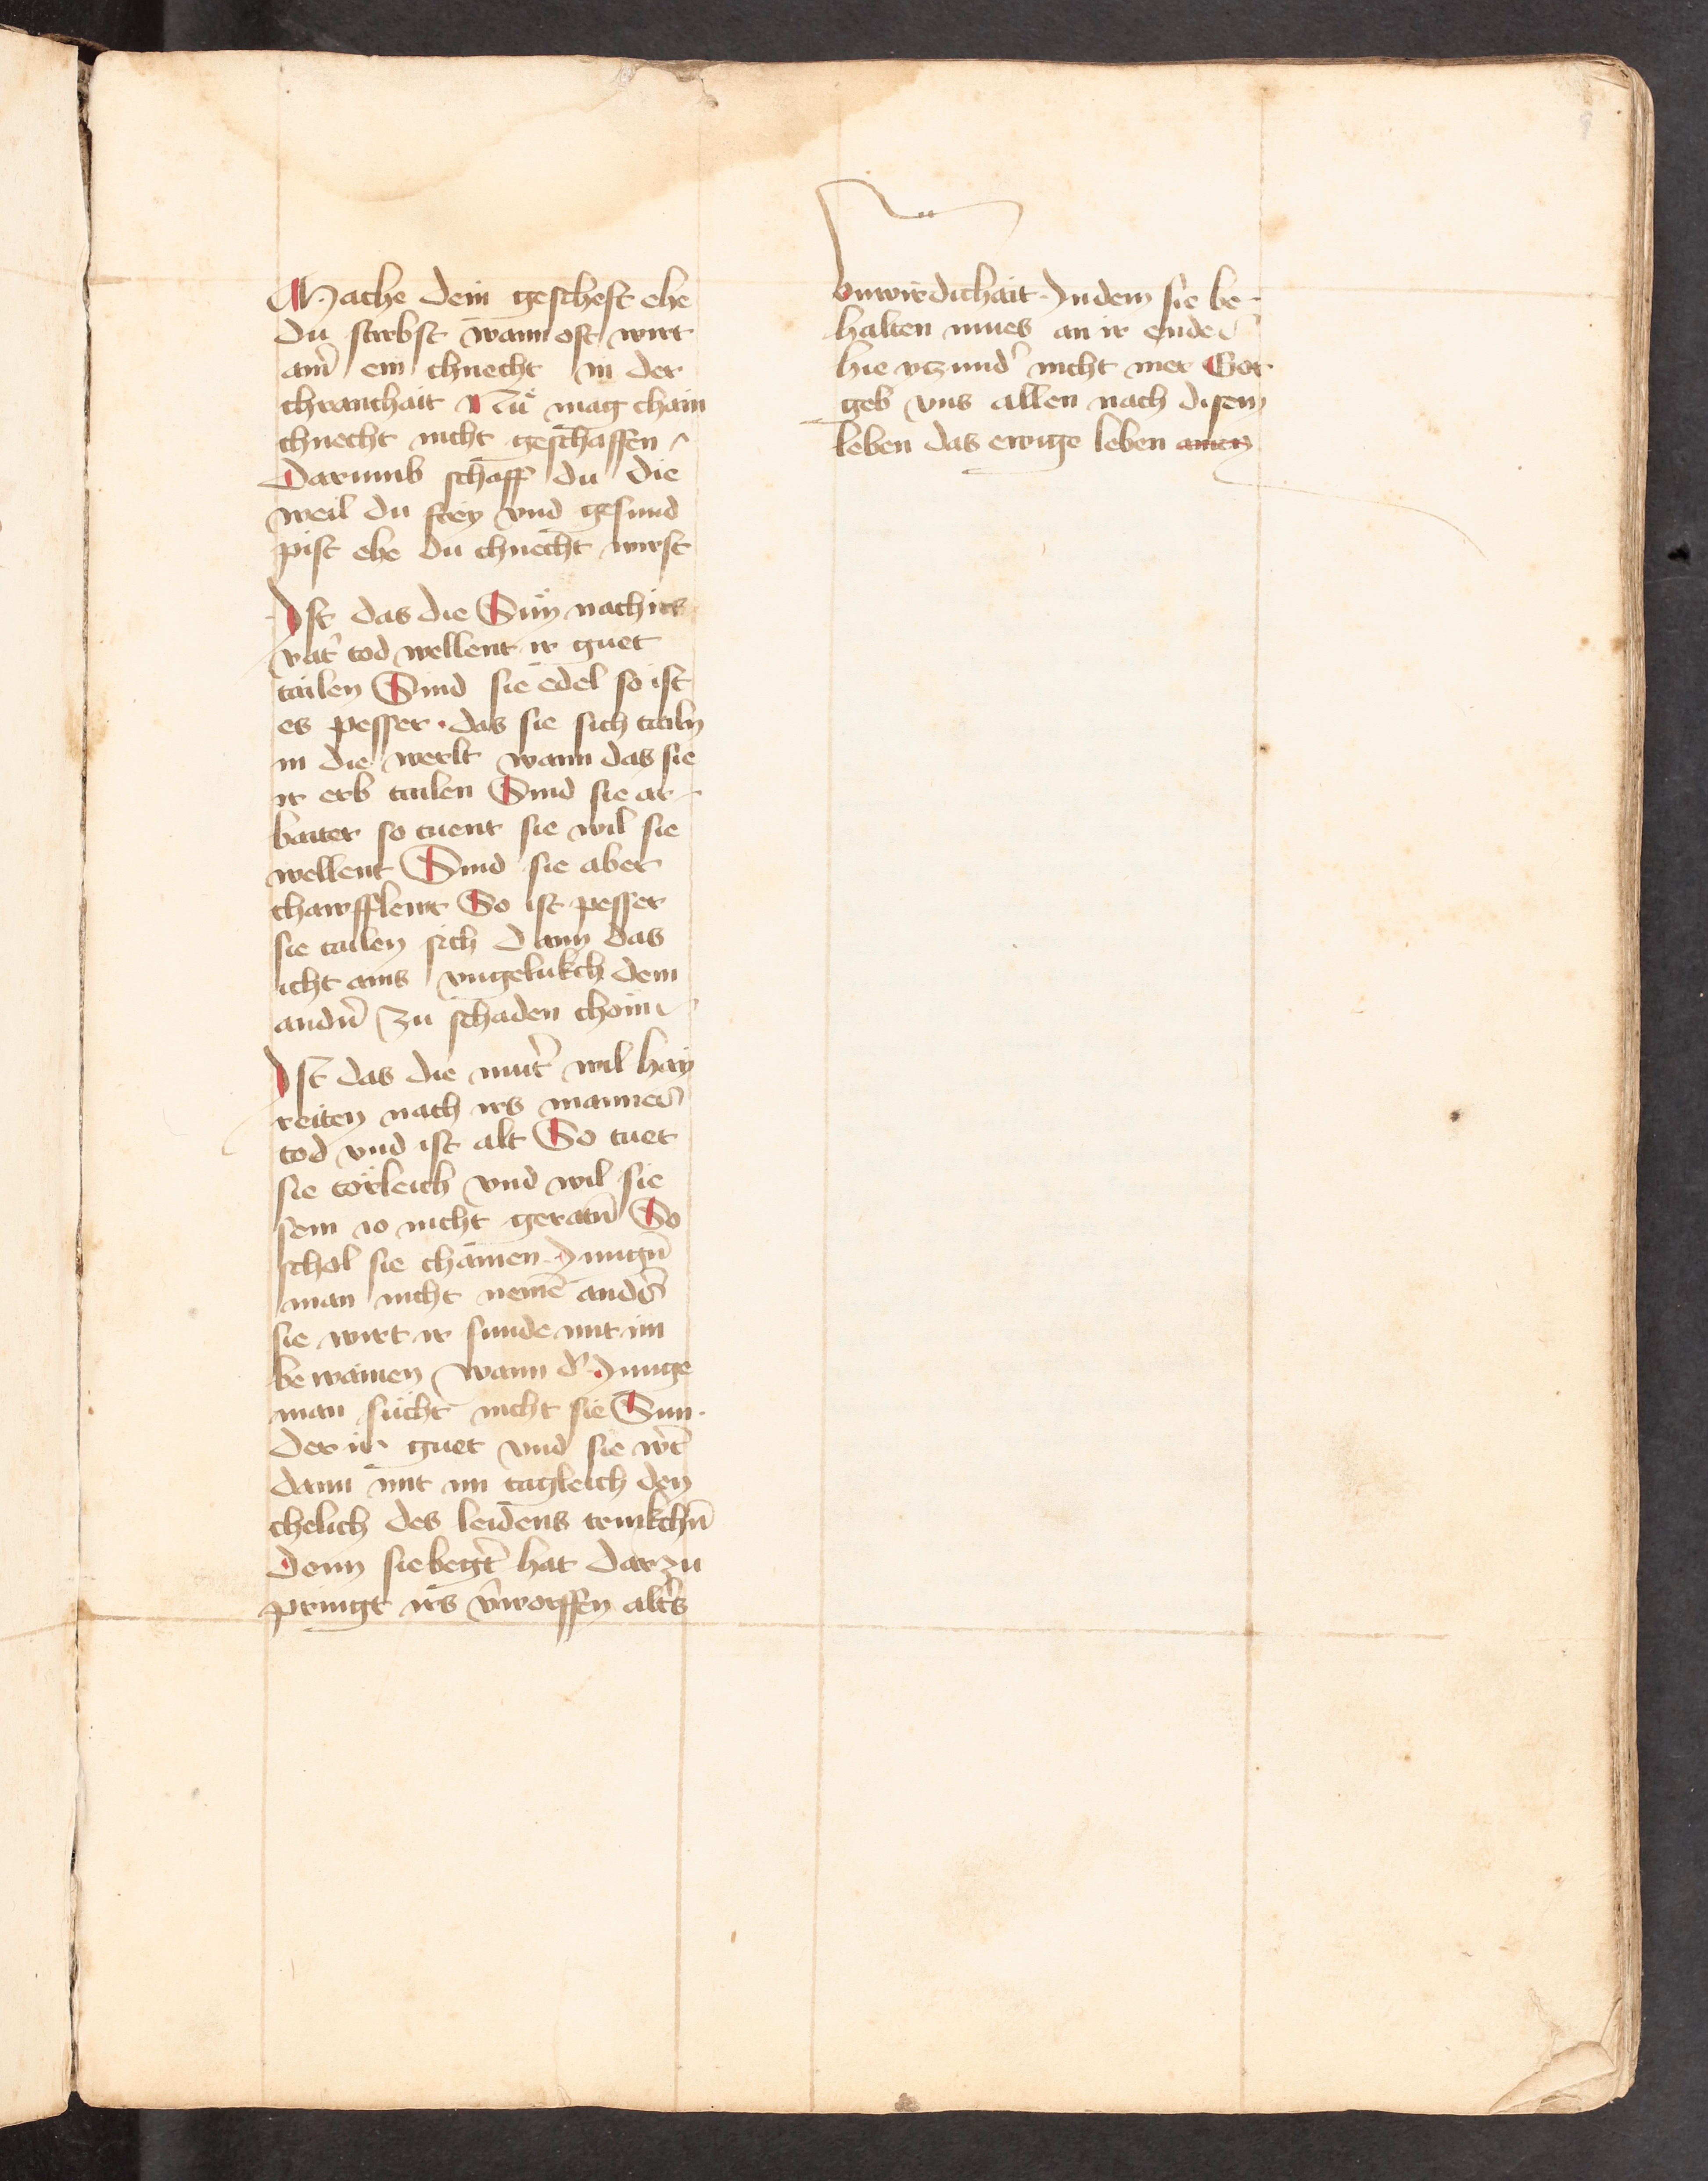 Mache dein gescheft ehe
du stirbst wann oft wirt
ain̄ ein chnecht in der
chranchait Nů mag chain
chnecht nicht geschaffen
Darumb schaff du die
weil du frey vnd gesund
pist ehe du chnecht wirst
Ist das die Sün nach irs
vat̄ tod wellent ir guet
tailen Sind sie edel so ist
es pesser · das sie sich tailn
in die werlt wann das sie
ir erb tailen Sind sie ar-
baiter so tuent sie wil sie
wellent Sind sie aber
chawfflewt So ist pesser
sie tailen sich dann das
icht ains vngelukch dem
andn̄ zu schaden chöm
Ist das die mut̄ wil hay
reiten nach irs mannes
tod vnd ist alt So tuet
sie törleich vnd wil sie
sein io nicht geratn̄ So
schol sie chainen Jungn̄
man nicht nemē anders
sie wirt ir sunde mit im
bewainen wann d̄ Junge
man sücht nicht sie Sun-
der ir guet vnd sie wt̄
dann mit im tagleich den
chelich des leidens trinkchn̄
Denn sie begt̄ hat darzu
pringt irs v̄worffen alt̄s
vnwirdichait Indem sie be-
halten mues an ir ende
hie yczund̄ nicht mer Got
geb vns allen nach disem
leben das ewige leben amen